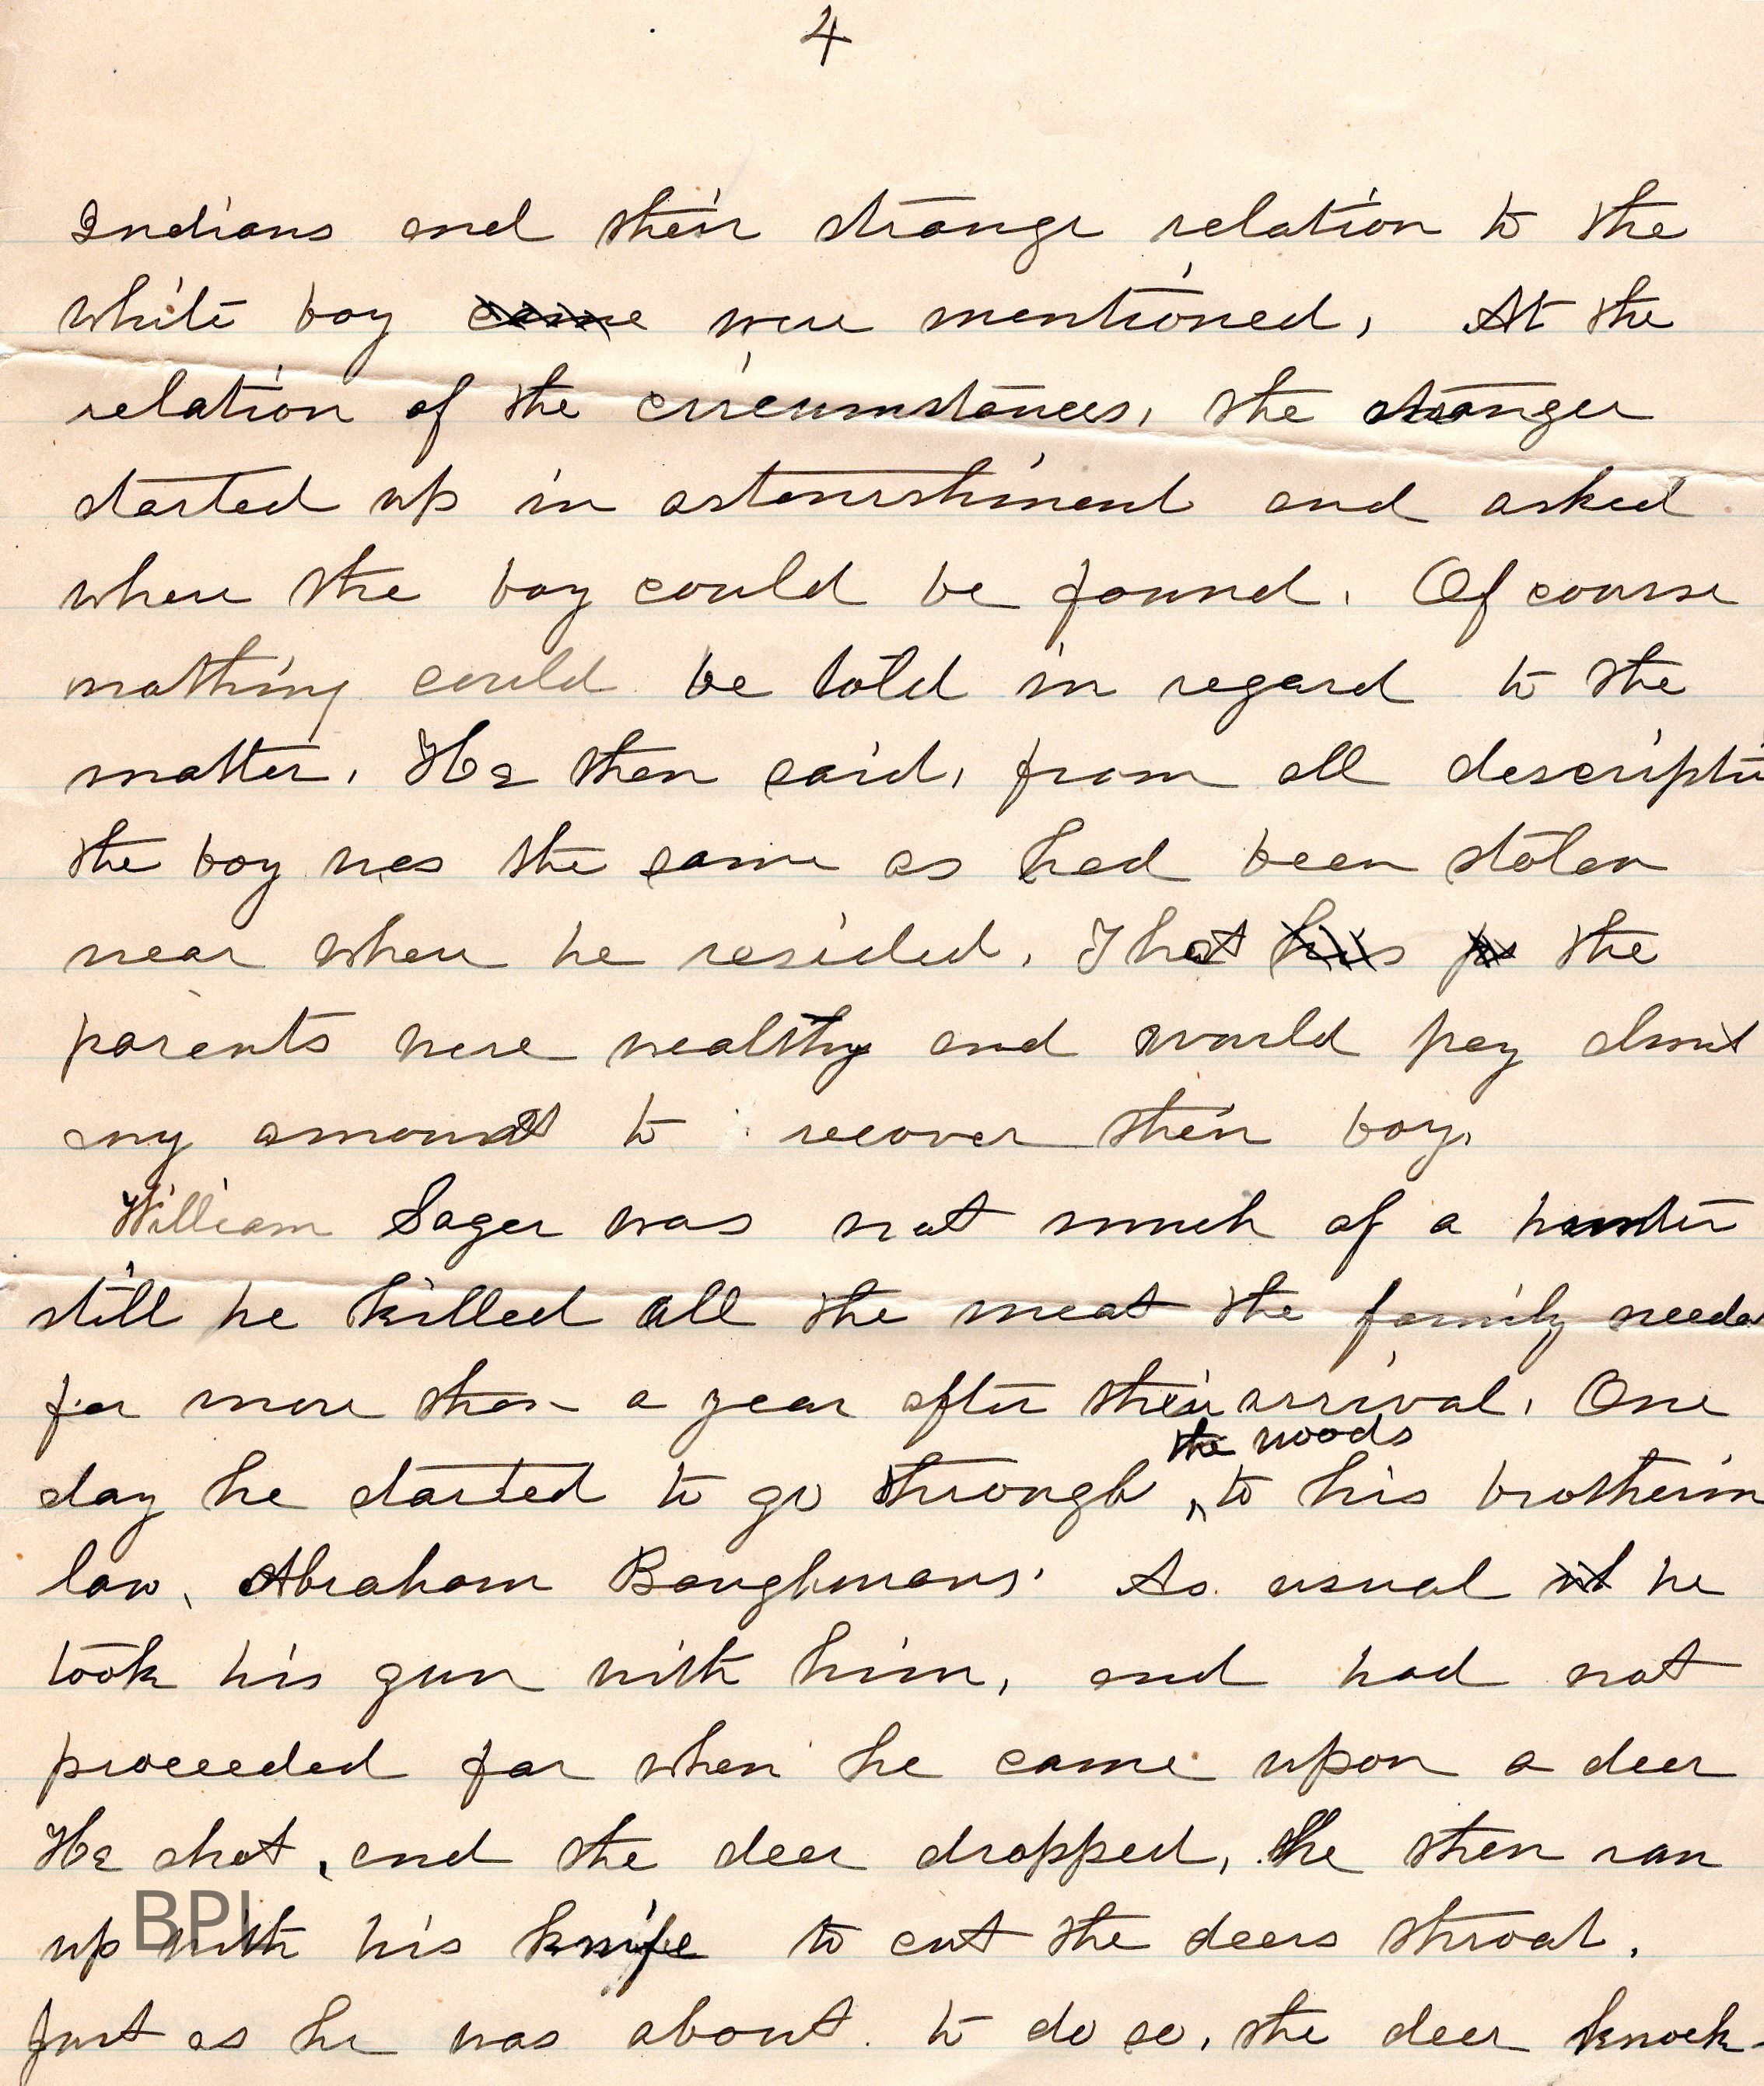 4
Indians and their strange relation to the
white boy came were mentioned. At the
relation of the circumstances, the stranger
started up in astonishment and asked
where the boy could be found. Of course
nothing could be told in regard to the
matter. He then said, from all descripti
the boy was the same as had been stolen
near where he resided. That his the
parents were wealthy and would pay almost
any amount to recover their boy.
William Sager was not much of a hunter
still he killed all the meat the family needed
for more than a year after their arrival. One
the woods
day he started to go through ‸ to his brotherin
law, Abraham Baughmans. As usual he
took his gun with him, and had not
proceeded far when he came upon a deer
He shot, and the deer dropped, he then ran
BPL
up with his knife to cut the deers throat.
Just as he was about to do so, the deer knock-